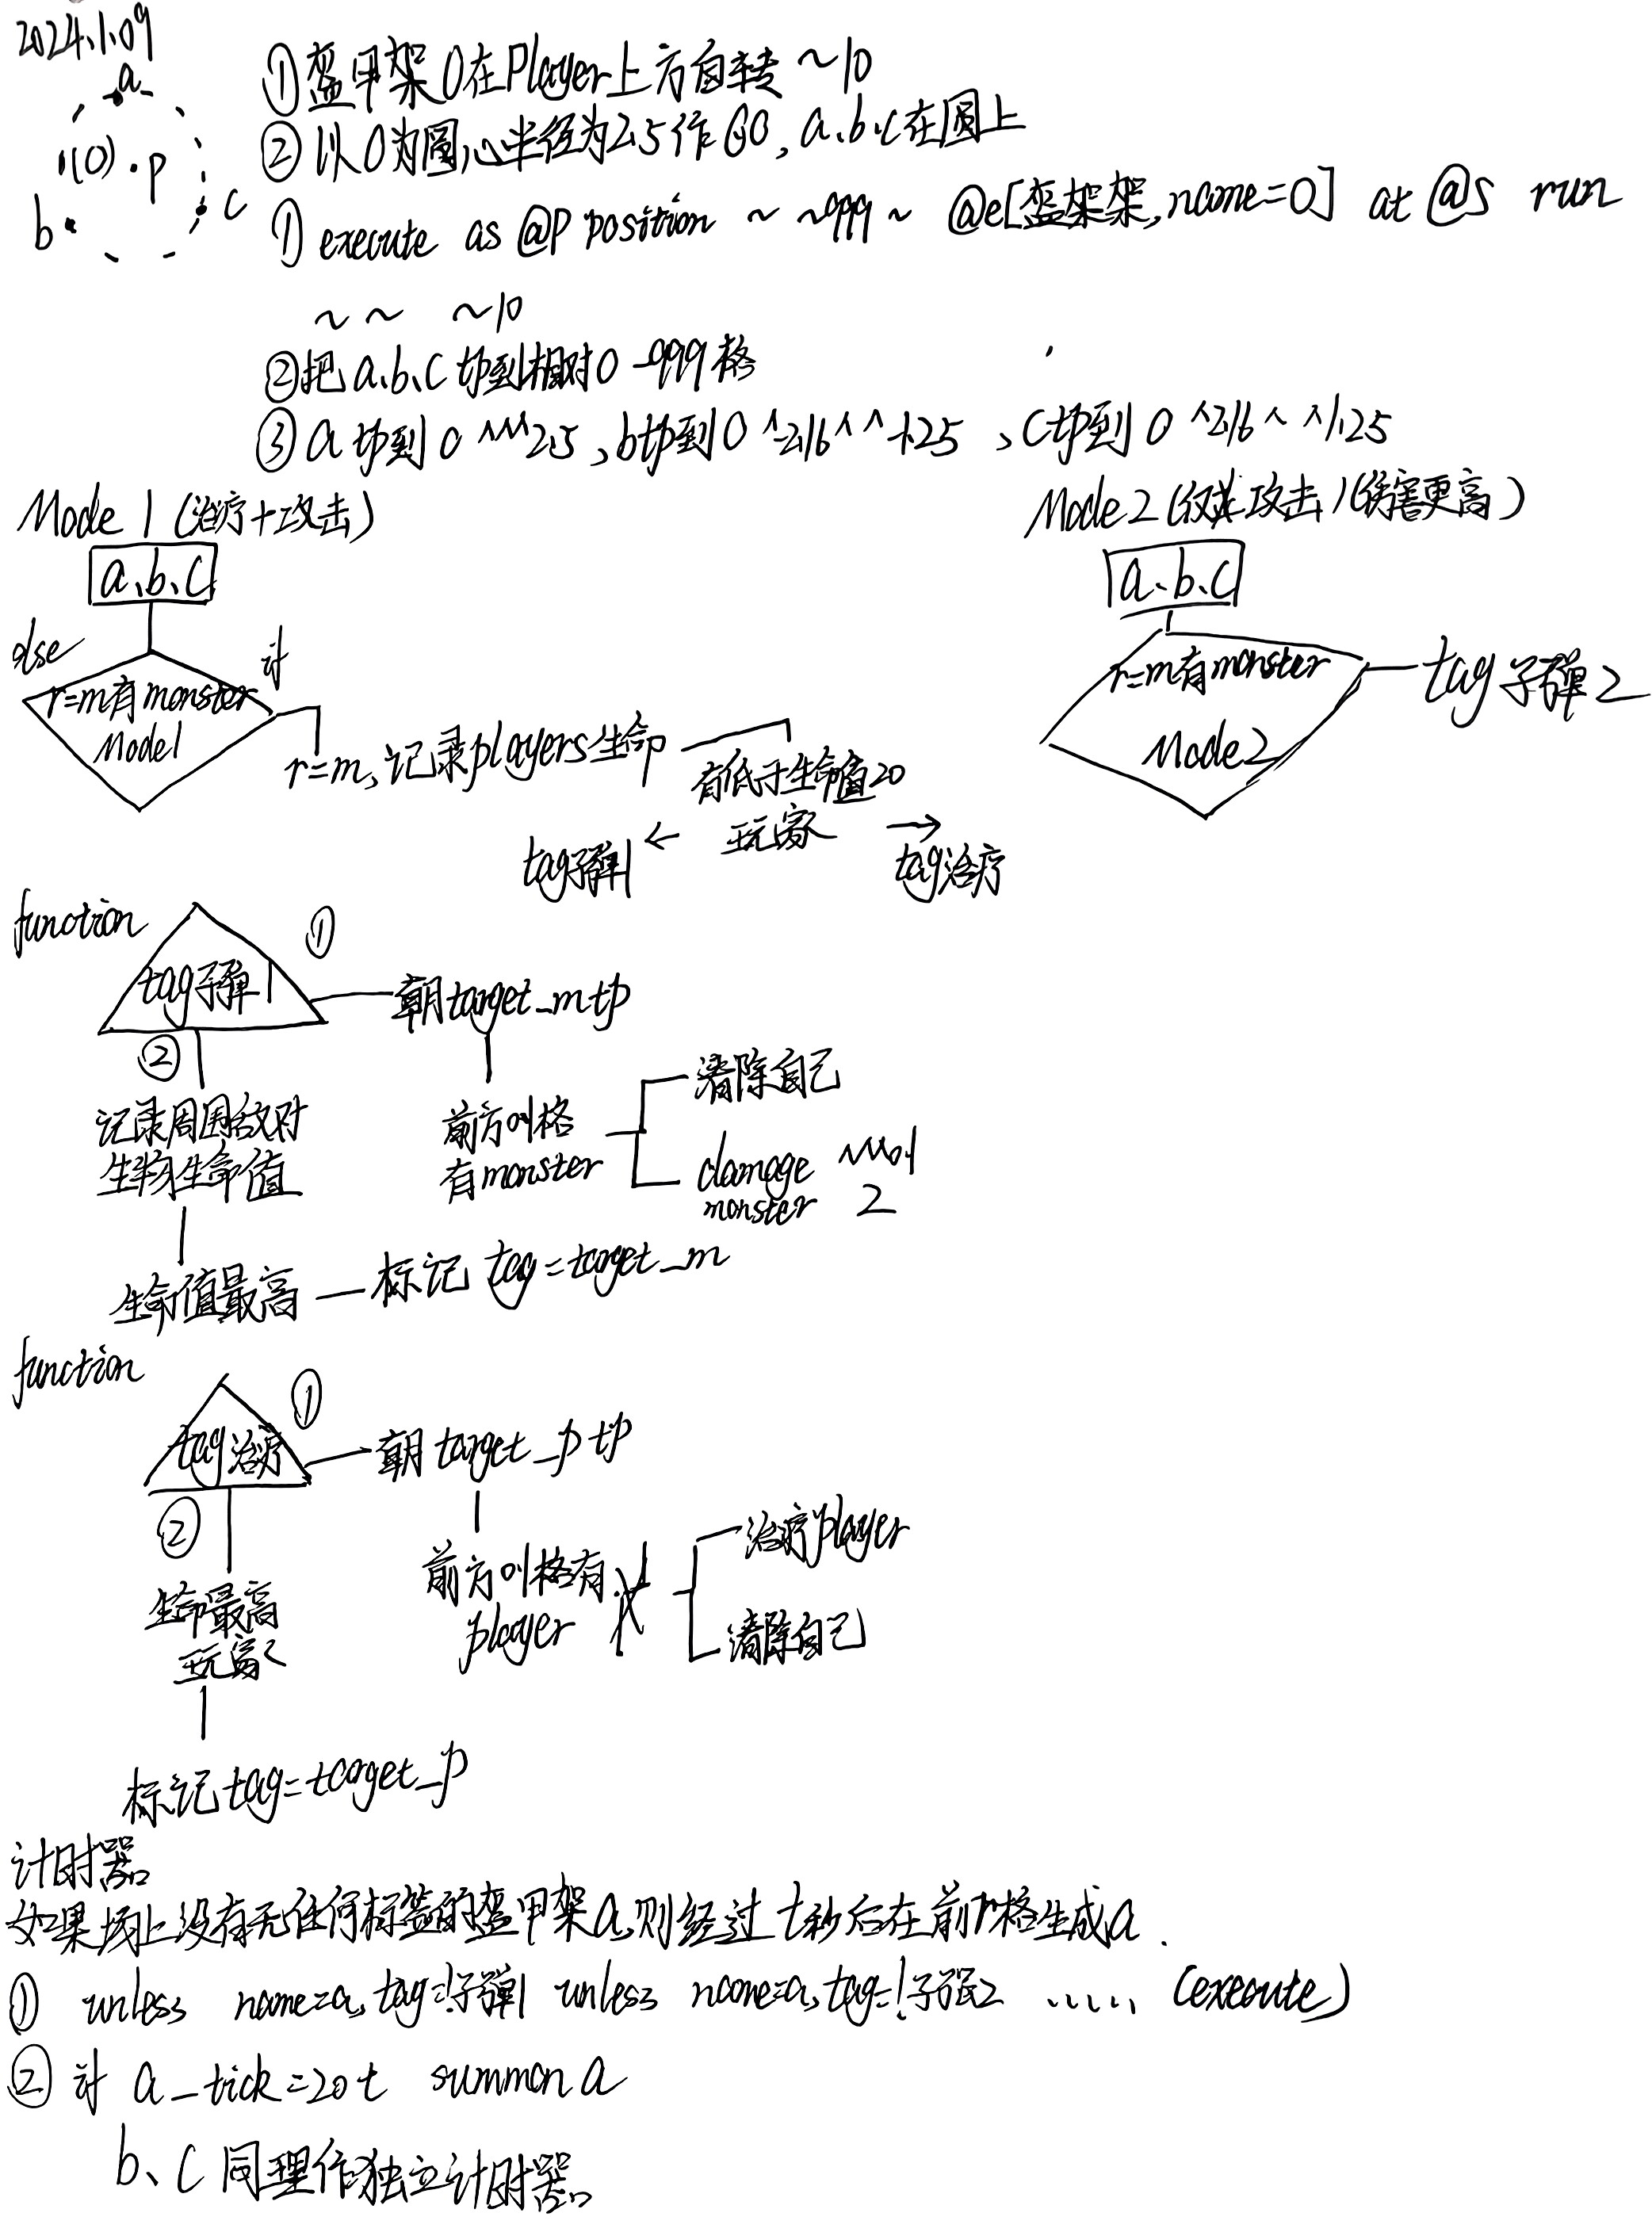 2024.1.09
a
1(0) · p
b
c
①盔甲架0在Player上方自转 ~10
②以0为圆心半径为2.5作⊙0,a、b、c在圆上
① execute as @p position ~ ~999 ~ @e[盔架架,name=0] at @s run
~ ~ ~10
②把a、b、c tp到相对0 -999格
③a tp到0 ^^^2.5,b tp到0 ^-2.16^^-1.25、c tp到0 ^2.16^ ^-1.25
Mode 1(治疗+攻击)
Mode2(仅攻击/伤害更高)
a、b、c
a、b、c
else
if
r=m有monster
Mode1
r=m有monster
Mode2
tag子弹2
r=m,记录players生命
有低于生命值20
玩家
tag子弹1 ←
→
tag治疗
function
①
tag子弹1
朝target_m tp
②
记录周围敌对
生物生命值
前方0.1格
有monster
清除自己
damage ^^^0.1
monster 2
生命值最高 — 标记 tag=target_m
function
①
tag治疗
朝target_p tp
②
前方0.1格有
player
治疗player
清除自己
生命最高
玩家
标记tag=target_p
计时器
如果场上没有无任何标签的盔甲架a,则经过t秒后在前r格生成a.
① unless name=a,tag=!子弹1 unless name=a,tag=!子弹2 ...... (execute)
② if a_tick=20t summon a
b、c同理作独立计时器